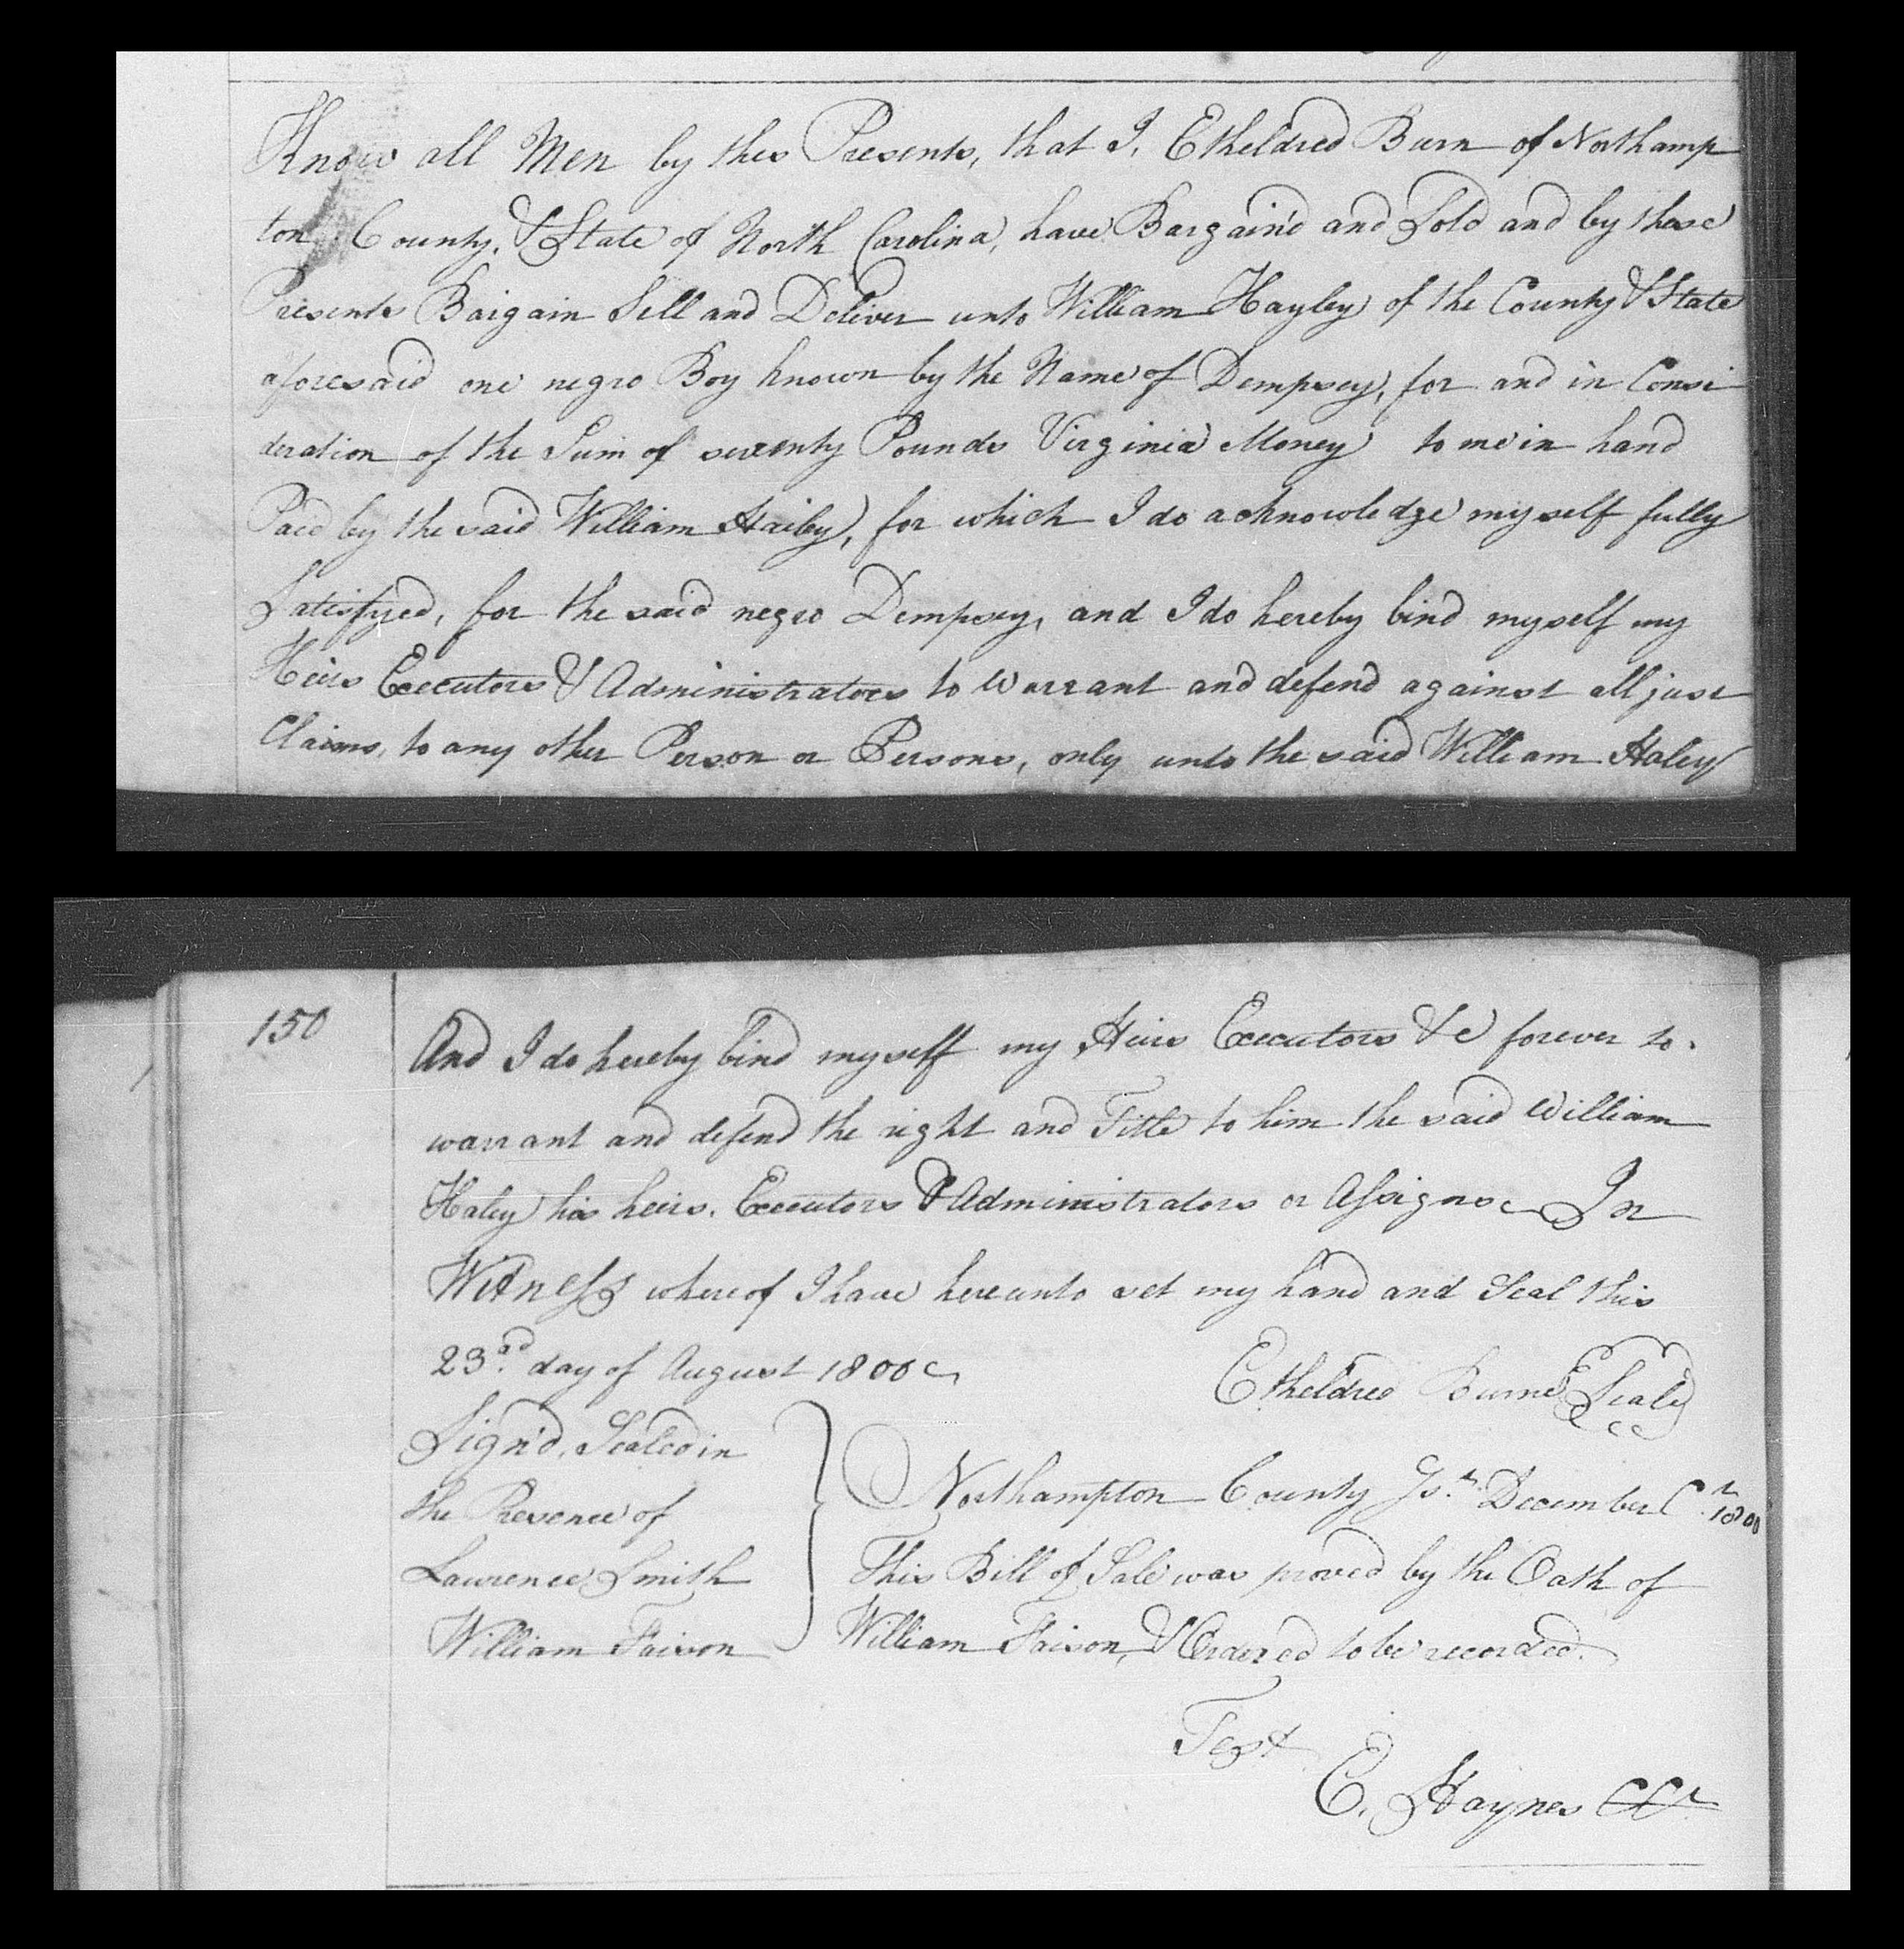 Know all Men by thes Presents, that I, Etheldred Burn of Northamp
ton County, & State of North Carolina, have Bargain'd and Sold and by these
Presents Bargain Sell and Deliver unto William Hayley of the County & State
aforesaid one negro Boy known by the Name of Dempsey, for and in Consi
deration of the Sum of seventy Pounds Virginia Money to me in hand
Paid by the said William Hailey, for which I do acknowledge myself fully
Satisfyed, for the said negro Dempsey, and I do hereby bind myself my
Heirs Executors & Administrators to Warrant and defend against all just
Claims, to any other Person or Persons, only unto the said William Haley
150
And I do hereby bind myself my Heirs Executors &c forever to
warrant and defend the right and Title to him the said William
Haley his heirs, Executors & Administrators or Assigns In
Witness whereof I have hereunto set my hand and Seal this
23rd. day of August 1800
Etheldred Burne Seal
Sign'd, Sealed in
the Presence of
Laurence Smith
William Faison
Northampton County Ss. December Ct. 1800
This Bill of Sale was proved by the Oath of
William Faison, & Ordered to be recorded.
Test
E. Haynes CCt